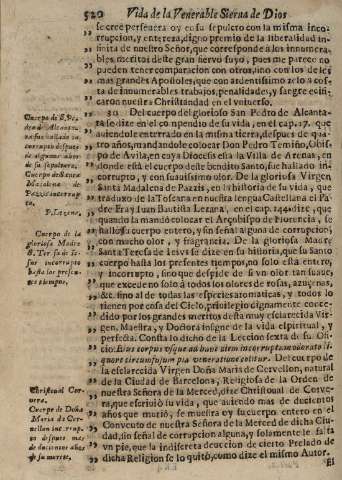 520 Vida de la Venerable Sierva de Dios
„ se cree persevera oy en su sepulcro con la misma inco-
„ rrupcion, y entereza, digno premio de la liberalidad in-
„ finita de nuestro Señor, que corresponde à los innumera-
„ bles meritos deste gran siervo suyo, pues me parece no
„ pueden tener comparacion con otros, sino con los de los
„ mas grandes Apostoles, que con ardentissimo zelo à cos-
„ ta de innumerables trabajos, penalidades, y sangre edifi-
„ caron nuestra Christiandad en el universo.
„ 30 Del cuerpo del glorioso San Pedro de Alcanta-
„ ra se dize en el compendio de su vida, en el cap. 17. que
„ aviendole enterrado en la misma tierra, despues de qua-
„ tro años, mandandole colocar Don Pedro Temiño, Obis-
„ po de Avila, en cuya Diocesi està la Villa de Arenas, en
„ donde està el cuerpo deste bendito Santo, fue hallado in-
„ corrupto, y con suavissimo olor. De la gloriosa Virgen
„ Santa Madalena de Pazzis, en la historia de su vida, que
„ traduxo de la Toscana en nuestra lengua Castellana el Pa-
„ dre Fray Juan Bautista Lezana, en el cap. 144. dize, que
„ quando la mandò colocar el Arçobispo de Florencia, se
„ hallò su cuerpo entero, y sin señal alguna de corrupcion;
„ con mucho olor, y fragrancia. De la gloriosa Madre
„ Santa Teresa de Jesvs se dize en su historia, que su Santo
„ cuerpo hasta los presentes tiempos, no solo està entero,
„ y incorrupto, sino que despide de si vn olor tan suave,
„ que excede no solo à todos los olores de rosas, azuçenas,
„ &c. sino al de todas las especies aromaticas, y todo lo
„ tienen por cosa del Cielo, privilegio dignamente conce-
„ dido por los grandes meritos desta muy esclarecida Vir-
„ gen, Maestra, y Doctora insigne de la vida espiritual, y
„ perfecta. Consta lo dicho de la Leccion sexta de su Ofi-
„ cio: Eius corpus vsque ad hanc diem incorruptum odorato li-
„ quore circumfusum pia veneratione colitur. Del cuerpo de
„ la esclarecida Virgen Doña Maria de Cervellon, natural
„ de la Ciudad de Barcelona, Religiosa de la Orden de
„ nuestra Señora de la Merced, dize Christoval de Corve-
„ ra, que escriviò su vida, que aviendo mas de ducientos
„ años que muriò, se muestra oy su cuerpo entero en el
„ Convento de nuestra Señora de la Merced de dicha Ciu-
„ dad, sin señal de corrupcion alguna, y solamente le falta
„ vn pie, que la indiscreta devocion de cierto Prelado de
„ dicha Religion se lo quitò, como dize el mismo Autor.
El
Cuerpo de S. Pe-
dro de Alcanta-
ra
hallado in-
corrupto despues
de algunos años
de su sepultura.
Cuerpo de Santa
Madalena de
Pazzis incorrup-
to.
P. Lezana.
Cuerpo de la
gloriosa Madre
S. Teresa de Je-
sus incorrupto
hasta los presen-
tes tiempos.
Christoval Cor-
vera.
Cuerpo de Doña
Maria de Cer-
vellon incorrup-
to despues mas
de ducientos años
de su muerte.